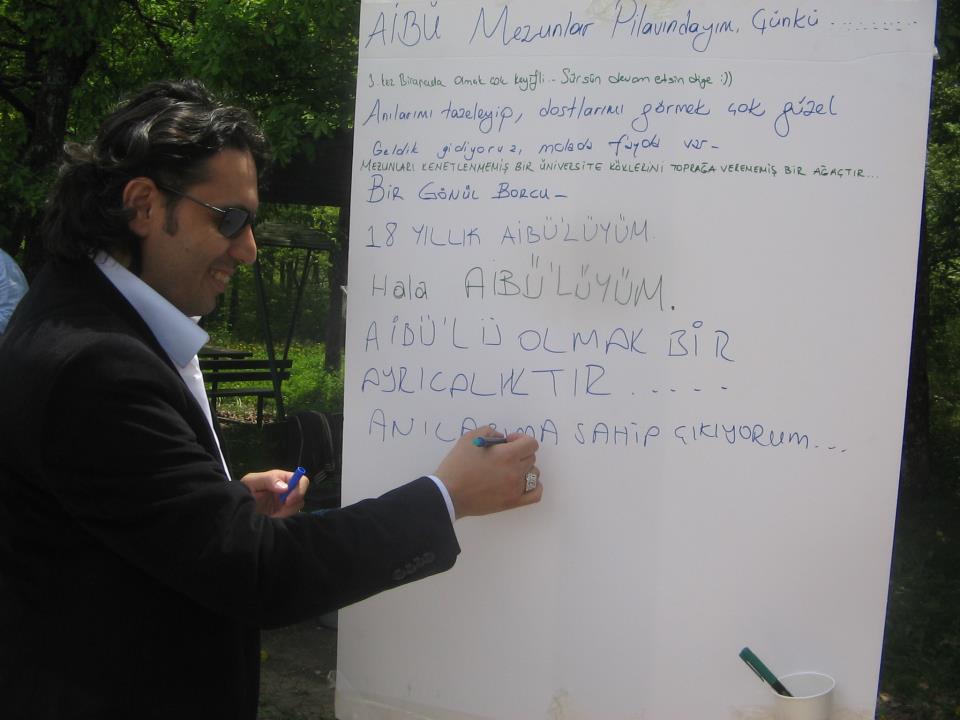 AİBÜ Mezunlar Pilavındayım, Çünkü ..........
3. kez Birarada olmak çok keyifli... Sürsün devam etsin diye :))
Anılarımı tazeleyip, dostlarımı görmek çok güzel
Geldik gidiyoruz, molada fayda var-
MEZUNLARI KENETLENMEMİŞ BİR ÜNİVERSİTE KÖKLERİNİ TOPRAĞA VEREMEMİŞ BİR AĞAÇTIR...
BİR GÖNÜL BORCU-
18 YILLIK AİBÜ'LÜYÜM.
Hala AİBÜ'LÜYÜM.
AİBÜ'LÜ OLMAK BİR
AYRICALIKTIR . . - - - -
ANILARIMA SAHİP ÇIKIYORUM...